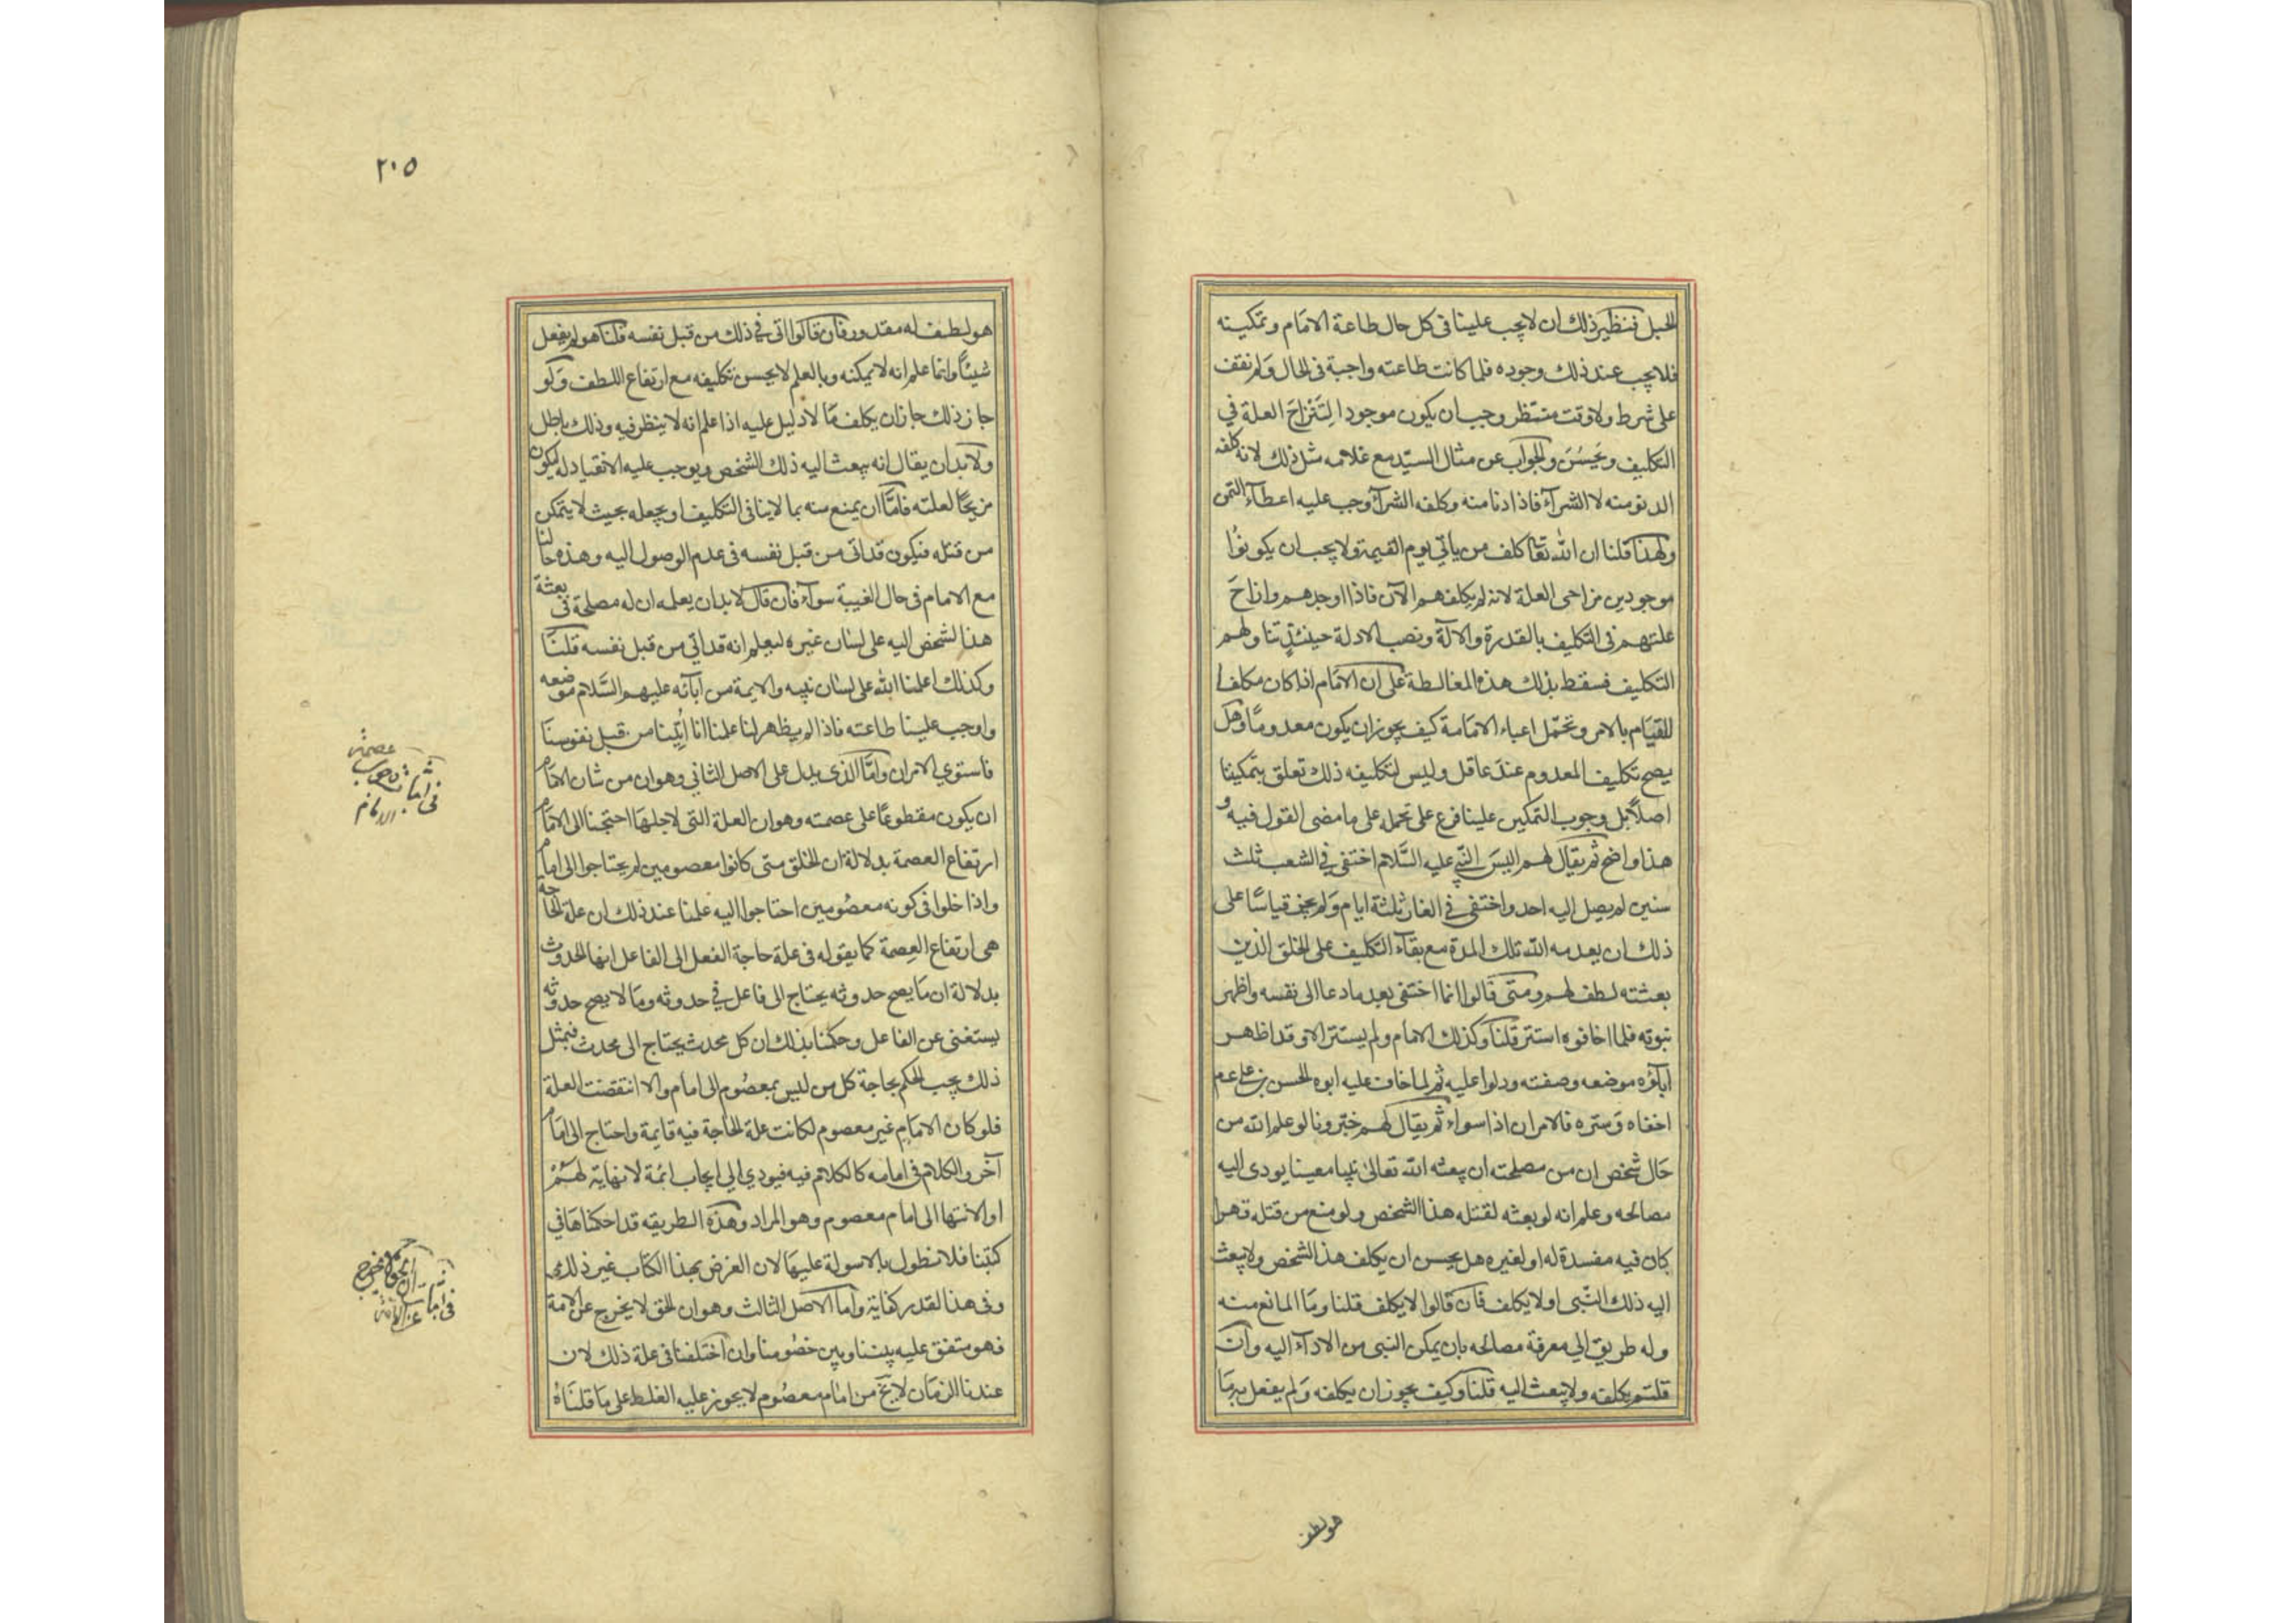 الحبل فنظير ذلك ان لا يجب علينا فى كل حال طاعة الامام و تمكينه
فلا يجب عند ذلك وجوده فلما كانت طاعته واجبة فى الحال ولم نقف
على شرط ولا وقت منتظر وجب ان يكون موجودا لِتَنْزاحَ العلة في
التكليف ويَحسُنَ والجواب عن مثال السيّد مع غلامه مثل ذلك لانه كلفه
الدنو منه لا الشرآء فاذا دنا منه وكلفه الشرآء وجب عليه اعطآء الثمن
ولهذا قلنا ان الله تعا كلف من ياتي يوم القيمة ولا يجب ان يكونوا
موجودين مزاحى العلة لانه لم يكلفهم الآن فاذا اوجدهم وازاحَ
علتهم فى التكليف بالقدرة والالة ونصب الادلة حينئذٍ تناولهم
التكليف فسقط بذلك هذه المغالطة على ان الامام اذا كان مكلفا
للقيام بالامر وتحمّل اعباء الامامة كيف يجوز ان يكون معدومًا وهل
يصح تكليف المعدوم عند عاقل وليس لتكليفه ذلك تعلق بتمكينا
اصلاً بل وجوب التمكين علينا فرع على تحمله على ما مضى القول فيه و
هذا واضح ثم يقال لهم اليسَ النبي عليه السَّلام اختفى في الشعب ثلث
سنين لم يصل اليه احد واختفى في الغار ثلثة ايام ولم يجز قياسًا على
ذلك ان يعدمه الله تلك المدة مع بقآء التكليف على الخلق الذين
بعثته لطف لهم ومتى قالوا انما اختفى بعد ما دعا الى نفسه واظهر
نبوته فلما اخافوه استتر قلنا وكذلك الامام ولم يستتر الا وقد اظهر
آباؤه موضعه وصفته ودلوا عليه ثم لما خاف عليه ابوه الحسن بن على عم
اخفاه وستره فالامران اذا سواء ثم يقال لهم خبّرونا لو علم الله من
حال شخص ان من مصلحته ان يبعثه الله تعالى نبيا معينا يودى اليه
مصالحه وعلم انه لو بعثه لقتله هذا الشخص ولو منع من قتله قهرا
كان فيه مفسدة له او لغيره هل يحسن ان يكلف هذا الشخص ولا يبعث
اليه ذلك النّبى او لا يكلف فان قالوا لا يكلف قلنا وما المانع منه
وله طريق الي معرفة مصالحه بان يمكن النبى من الادآء اليه وان
قلتم يكلفه ولا يبعث اليه قلنا وكيف يجوز ان يكلفه ولم يفعل به ما
هو لطف
٢٠٥
هو لطف له مقدور فان قالوا اتى في ذلك من قبل نفسه قلنا هو لم يفعل
شيئاً وانما علم انه لا يمكنه وبالعلم لا يحسن تكليفه مع ارتفاع اللطف ولو
جاز ذلك جاز ان يكلف ما لا دليل عليه اذا علم انه لا ينظر فيه وذلك باطل
ولا بد ان يقال انه يبعث اليه ذلك الشخص ويوجب عليه الانقياد له ليكون
مزيحًا لعلته فامّا ان يمنع منه بما لا ينافى التكليف او يجعله بحيث لا يتمكن
من قتله فيكون قد اتى من قبل نفسه فى عدم الوصول اليه وهذه حالنا
مع الامام فى حال الغيبة سوآء فان قال لا بد ان يعلمه ان له مصلحة فى بعثة
هذا لشخص اليه على لسان غيره ليعلم انه قد اتي من قبل نفسه قلنا
وكذلك اعلمنا الله على لسان نبيه والايمة من آبآئه عليهم السَّلام موضعه
واوجب علينا طاعته فاذا لم يظهر لنا علمنا انا اُتِينا من قبل نفوسنا
فاستوي الامران وامّا الذى يدل على الاصل الثاني وهو ان من شان الامام
ان يكون مقطوعًا على عصمته وهو ان العلة التى لاجلها احتجنا الى الامام
ارتفاع العصمة بدلالة ان الخلق متى كانوا معصومين لم يحتاجوا الى امام
واذا خلوا فى كونه معصُومين احتاجوا اليه علمنا عند ذلك ان علة الحاجة
هى ارتفاع العِصمة كما يقوله فى علة حاجة الفعل الى الفاعل انها الحدوث
بدلالة ان ما يصح حدوثه يحتاج الى فاعل في حدوثه وما لا يصح حدوثه
يستغنى عن الفاعل وحكمنا بذلك ان كل محدث يحتاج الى محدث فبمثل
ذلك يجب الحكم بحاجة كل من ليس بمعصُوم الى امام والا انتقضت العلة
فلو كان الامام غير معصوم لكانت علة الحاجة فيه قايمة واحتاج الى امام
آخر والكلام فى امامه كالكلام فيه فيودي الي ايجاب ائمة لا نهاية لهم
او الانتها الى امام معصوم وهو المراد وهذه الطريقه قد احكمناها في
كتبنا فلا نطول بالاسولة عليها لان الغرض بهذا الكتاب غير ذلك
وفى هذا لقدر كفاية واما الاصل الثالث وهو ان الحق لا يخرج عن الامة
فهو متفق عليه بيننا وبين خصُومنا وان اختلفنا فى علة ذلك لان
عندنا الزمان لا يخ من امام معصُوم لا يجوز عليه الغلط على ما قلناه
فى اثبات وجوب عصمة
الامام
فى اثبات ان الحق لا يخرج
عن الامة